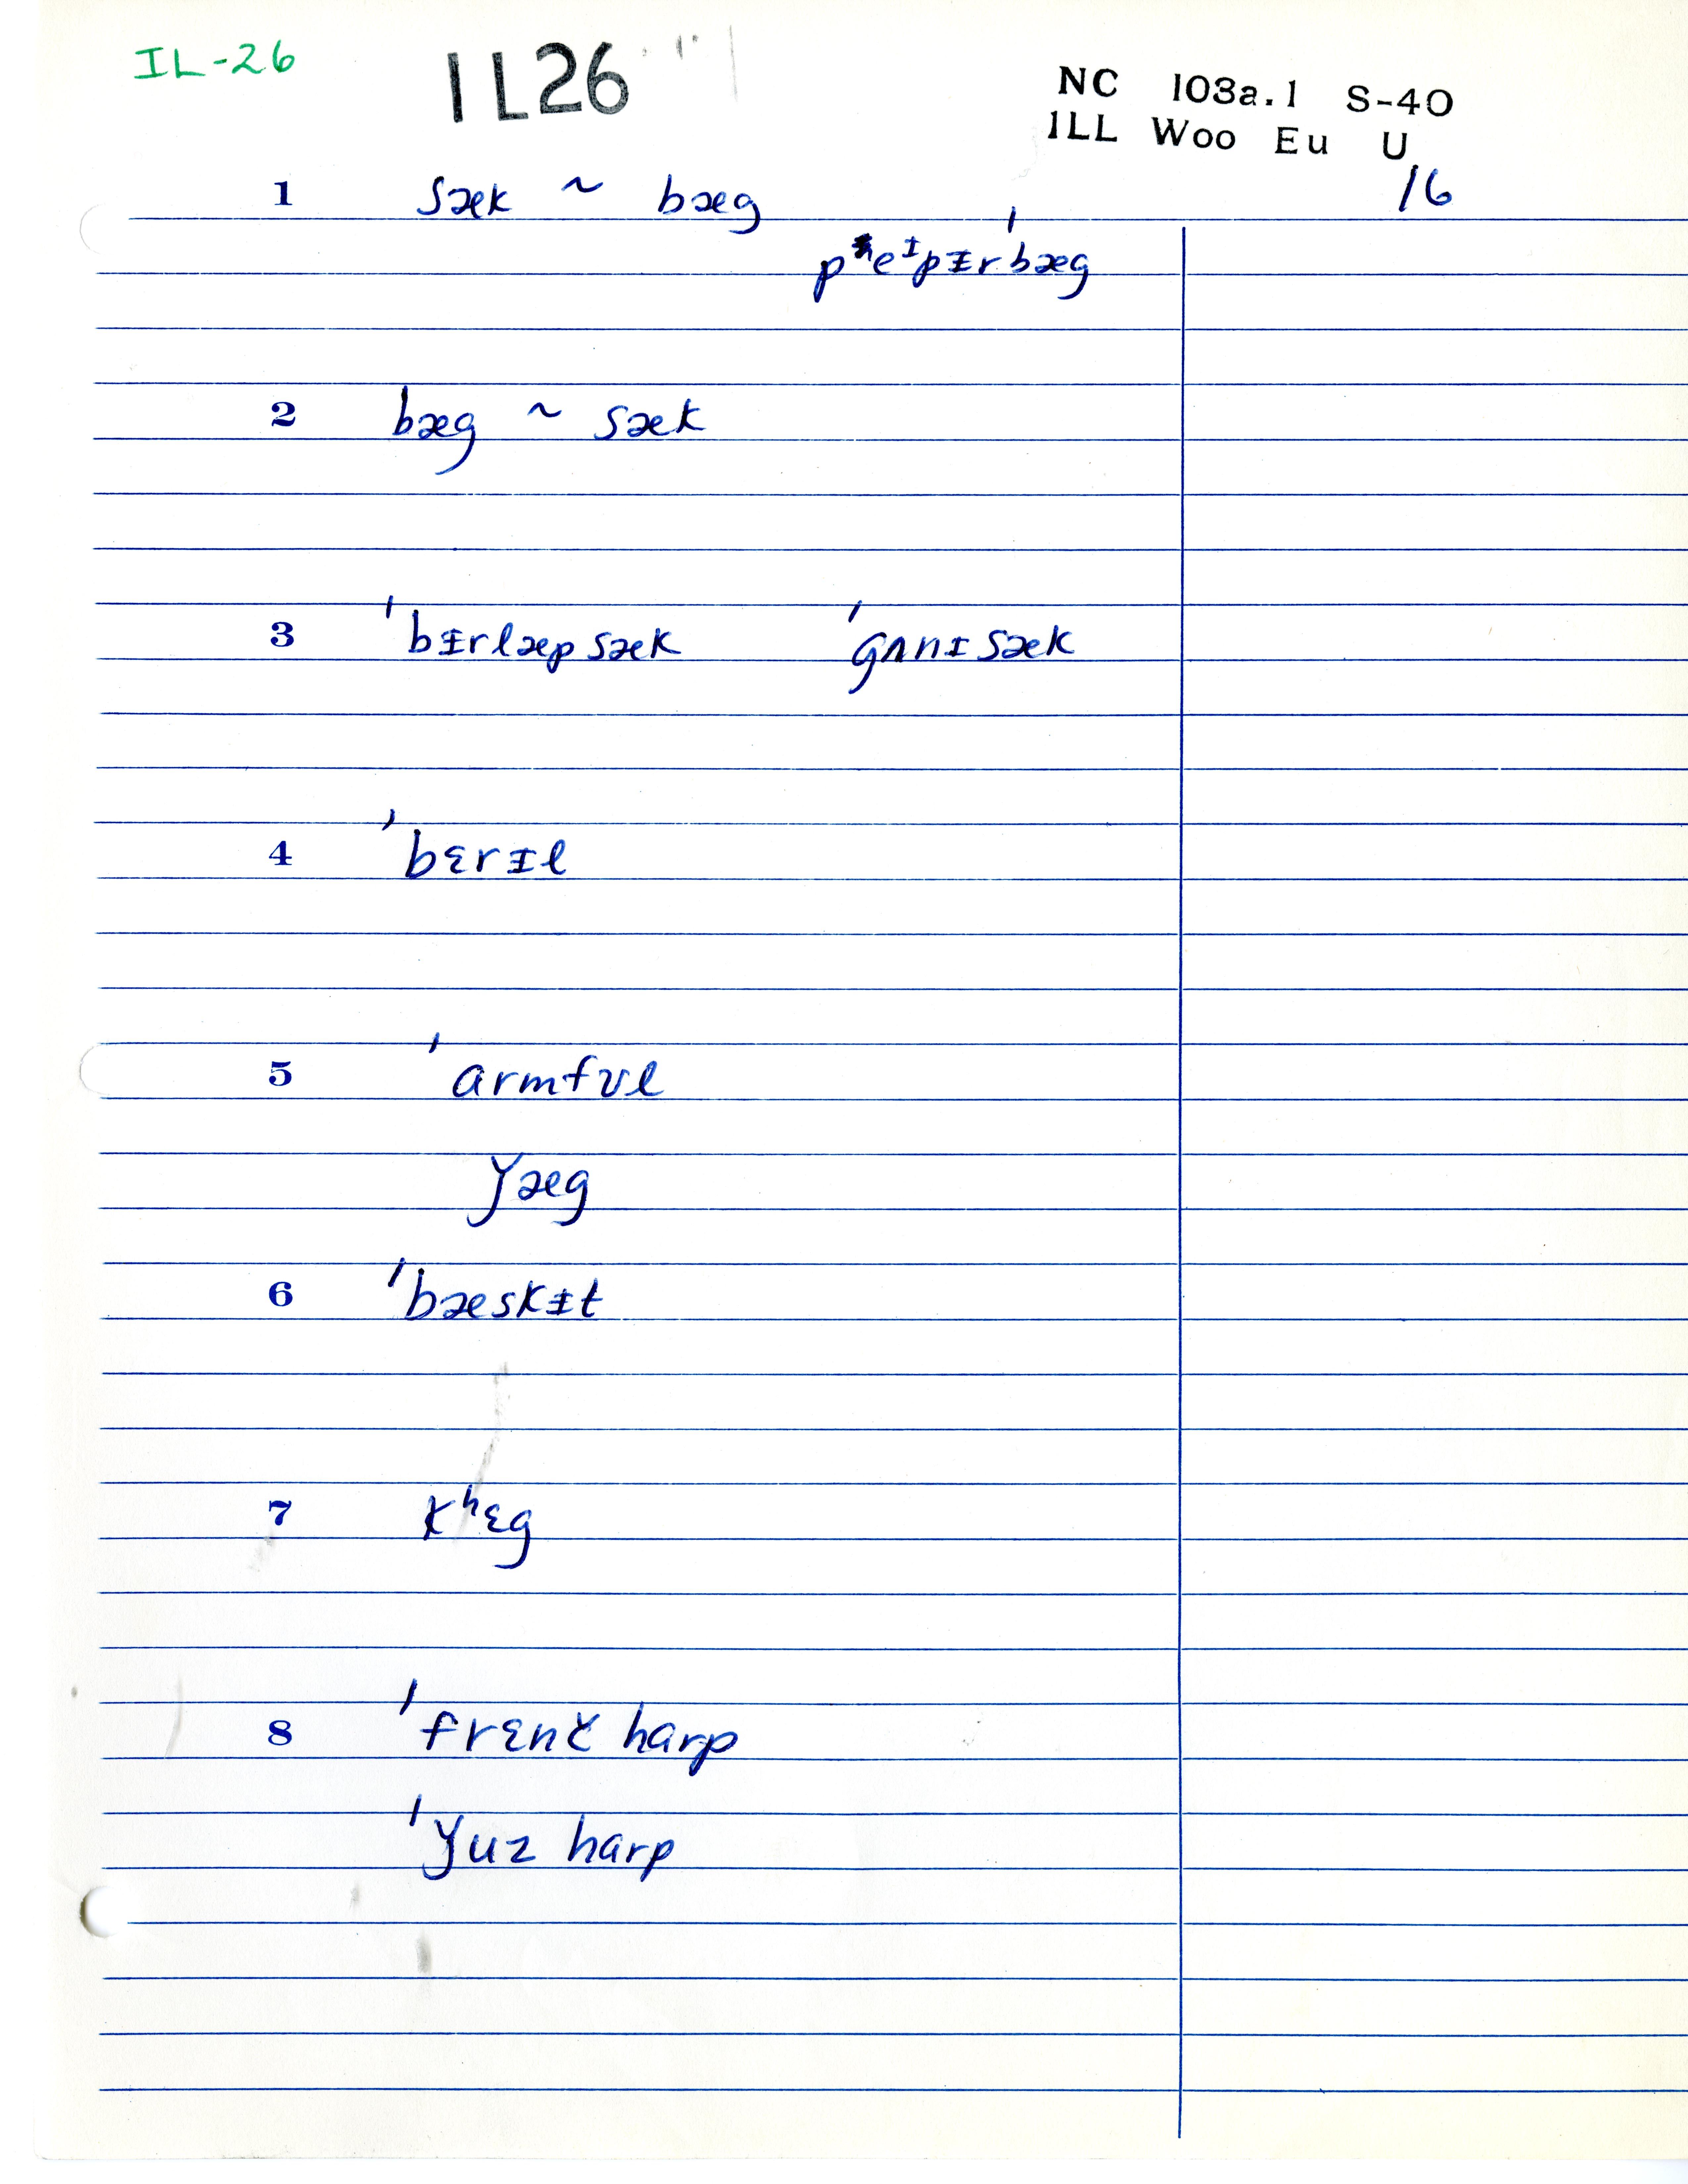 IL-26
IL26
NC 103a.1 S-40
ILL Woo Eu U
16
1 sæk ~ bæg
pʰeᶦpᵻrˈbæg
2 bæg ~ sæk
3 ˈbᵻrlæpsæk ˈgʌnɪsæk
4 ˈbɛrᵻl
5 ˈɑrmfʊl
ǰæg
6 ˈbæskᵻt
7 kʰɛg
8 ˈfrɛnč harp
ˈǰuz harp